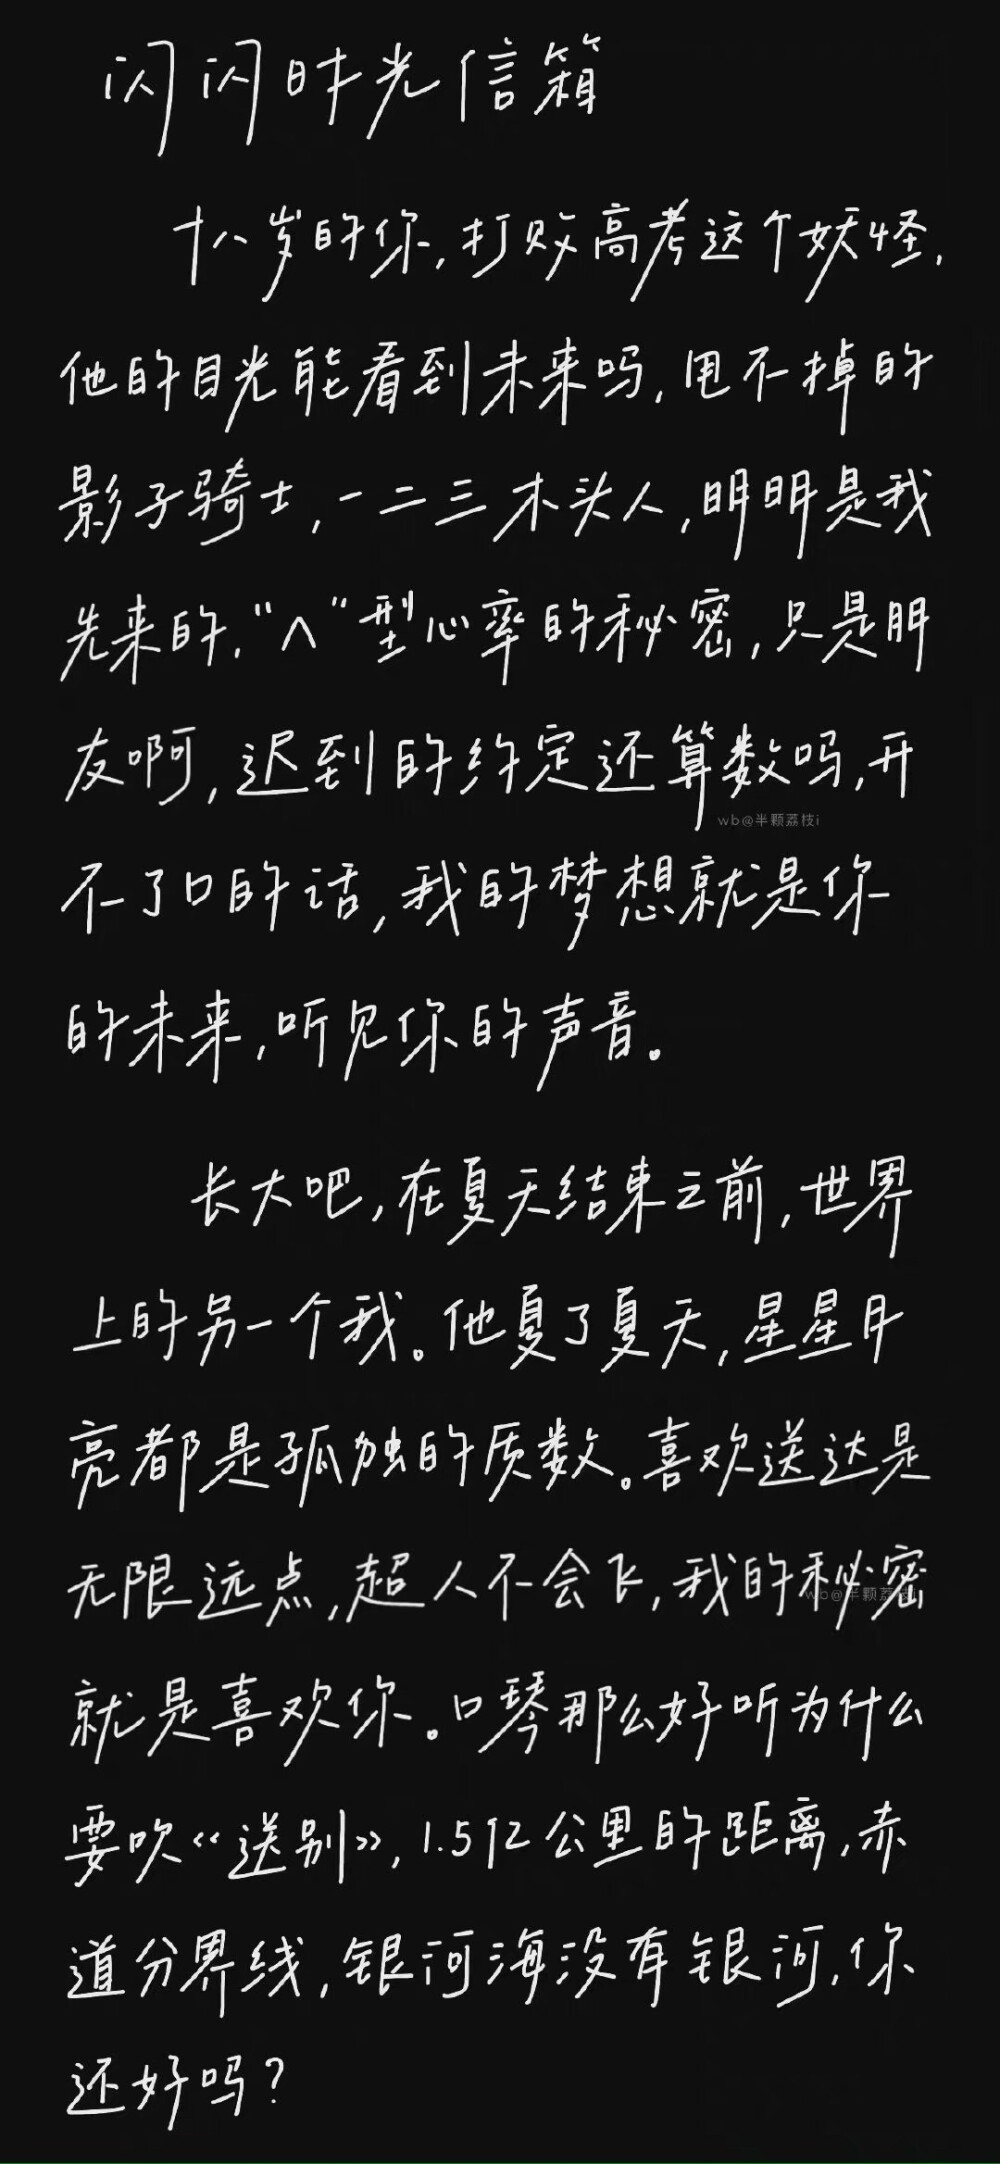 闪闪时光信箱
十八岁的你,打败高考这个妖怪,
他的目光能看到未来吗,甩不掉的
影子骑士,一二三木头人,明明是我
先来的,“∧”型心率的秘密,只是朋
友啊,迟到的约定还算数吗,开
wb@半颗荔枝i
不了口的话,我的梦想就是你
的未来,听见你的声音。
长大吧,在夏天结束之前,世界
上的另一个我。他夏了夏天,星星月
亮都是孤独的质数。喜欢送达是
无限远点,超人不会飞,我的秘密
wb@半颗荔枝i
就是喜欢你。口琴那么好听为什么
要吹《送别》,1.5亿公里的距离,赤
道分界线,银河海没有银河,你
还好吗?